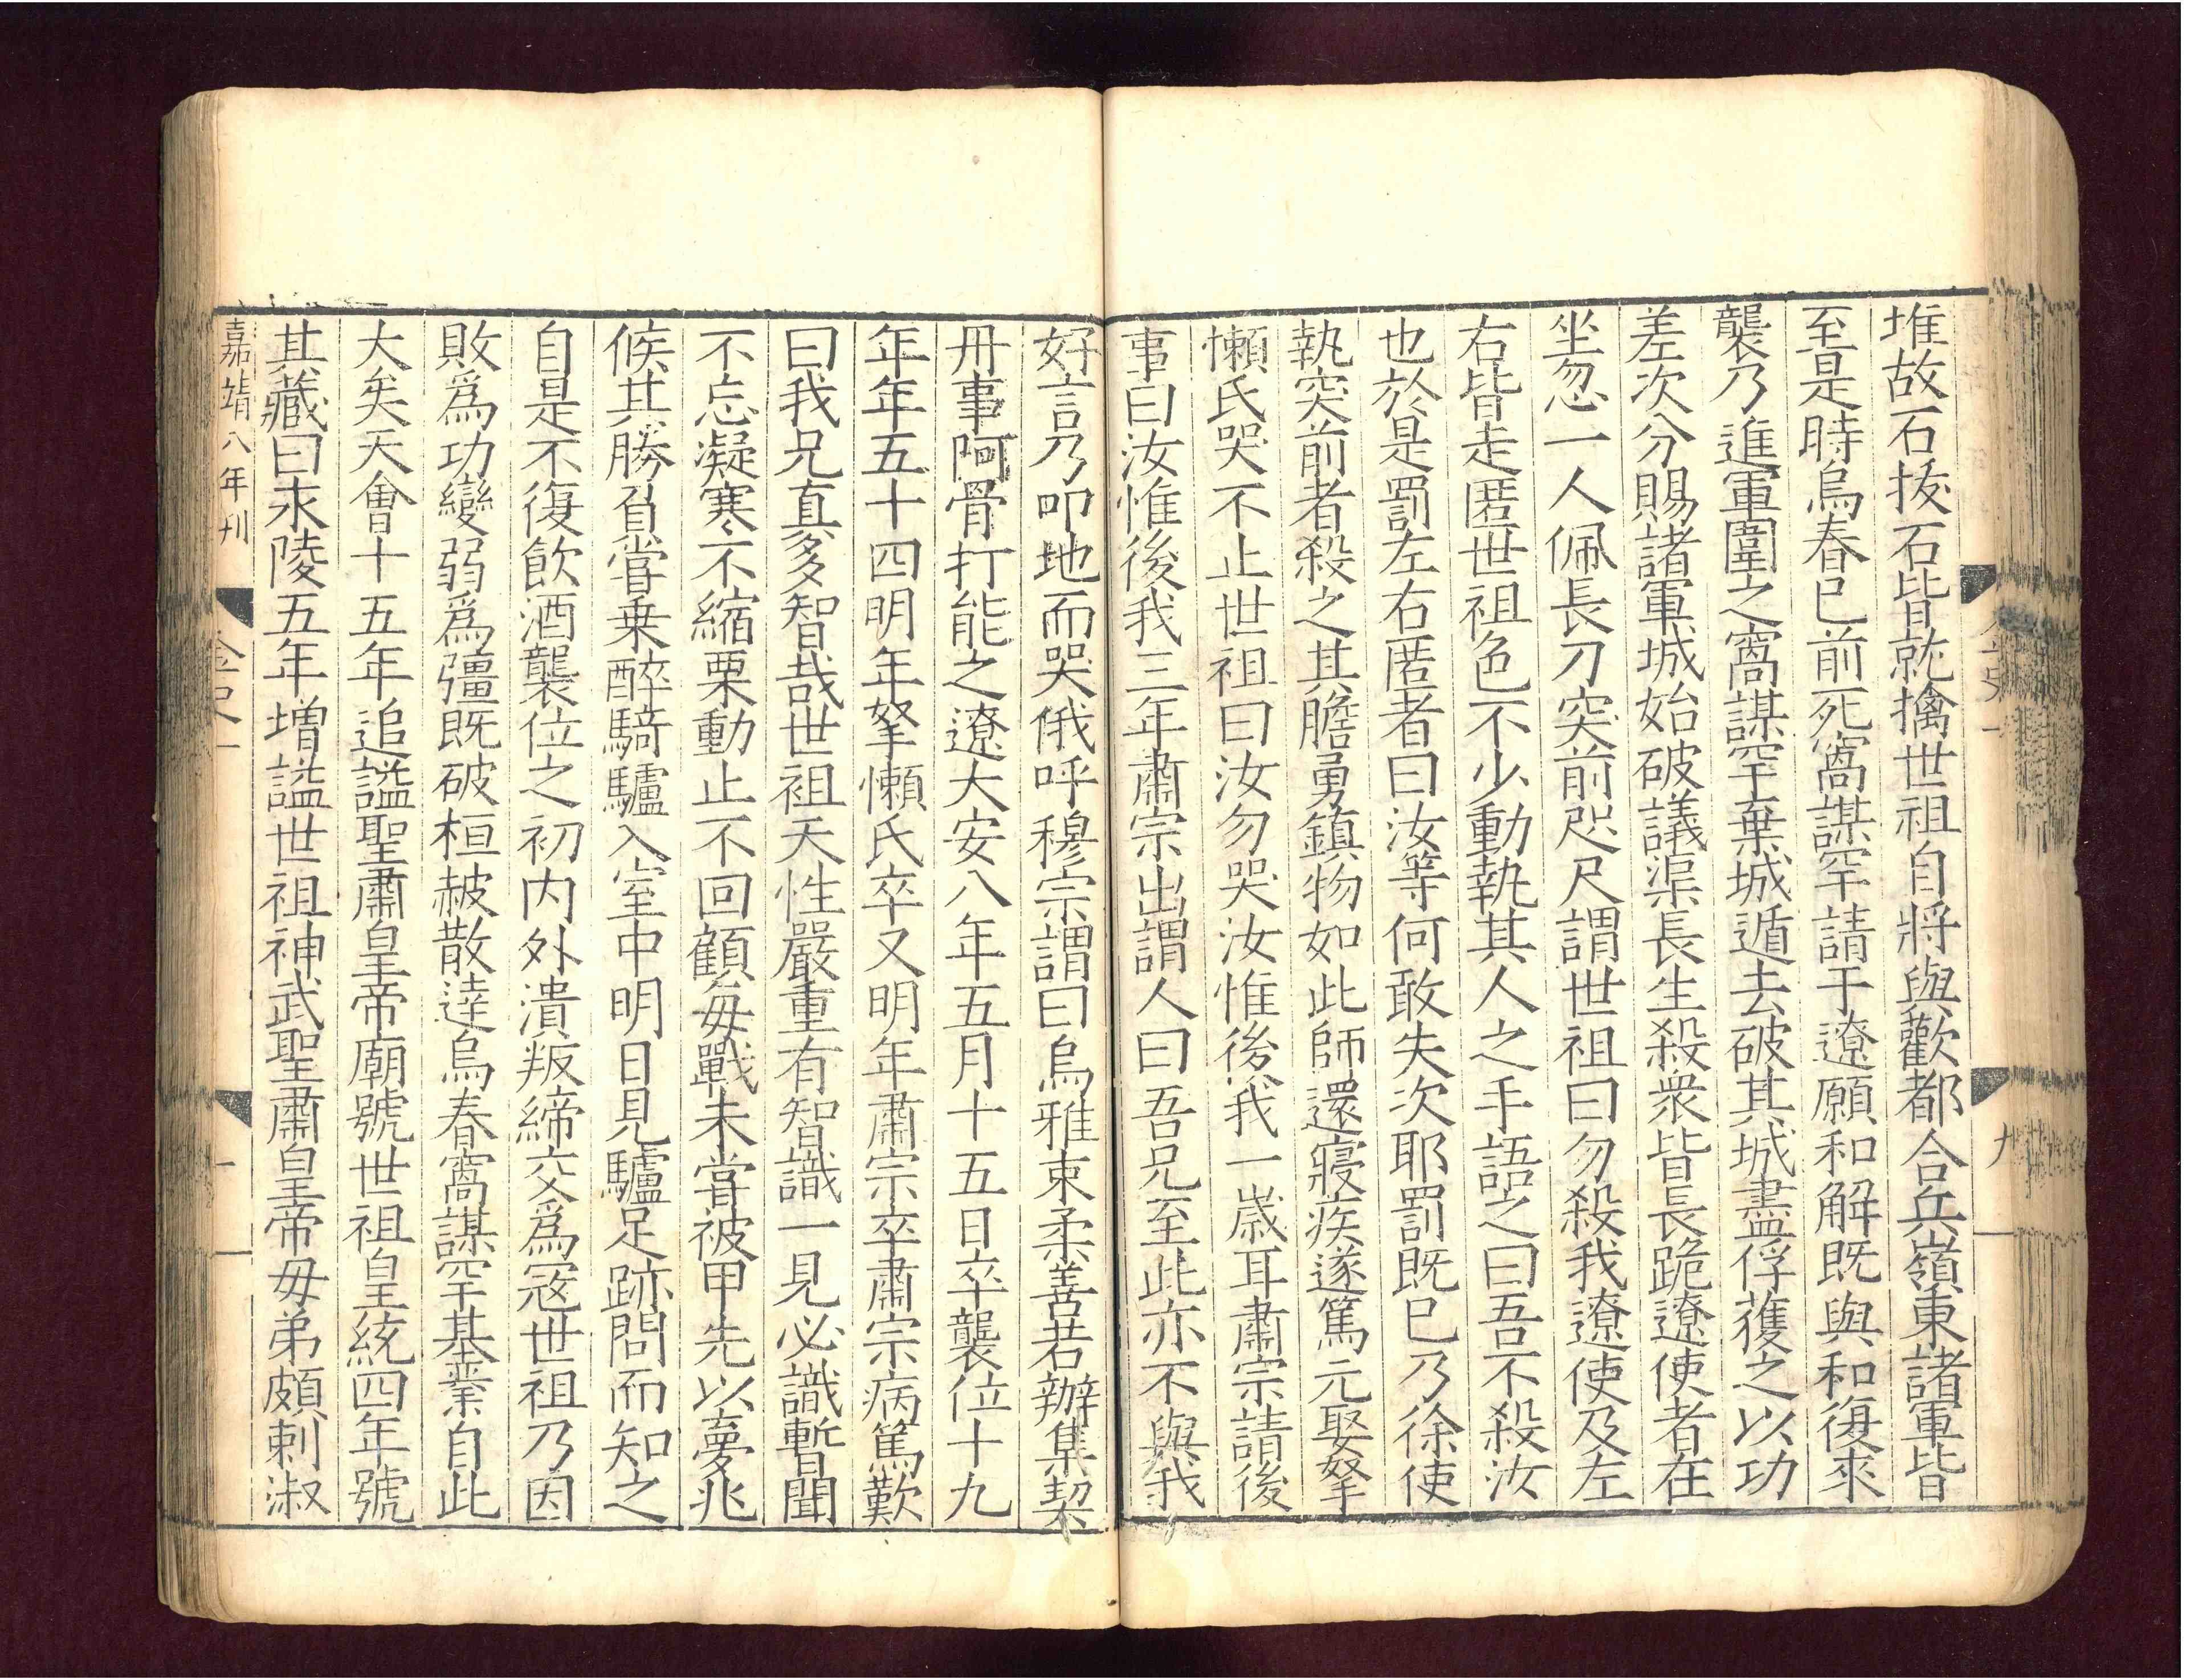 堆故石㧞石皆就擒世祖自將與歡都合兵嶺東諸軍皆
至是時烏春已前死窩謀罕請于遼願和解既與和復來
襲乃進軍圍之窩謀罕棄城遁去破其城盡俘獲之以功
差次分賜諸軍城始破議渠長生殺衆皆長跪遼使者在
坐忽一人佩長刀突前咫尺謂世祖曰勿殺我遼使及左
右皆走匿世祖色不少動執其人之手語之曰吾不殺汝
也於是罰左右匿者曰汝等何敢失次耶罰既已乃徐使
執突前者殺之其膽勇鎮物如此師還寢疾遂篤元娶拏
懶氏哭不止世祖曰汝勿哭汝惟後我一嵗耳肅宗請後
事曰汝惟後我三年肅宗出謂人曰吾兄至此亦不與我
好言乃叩地而哭俄呼穆宗謂曰烏雅束柔善若辦集契
丹事阿骨打能之遼大安八年五月十五日卒襲位十九
年年五十四明年拏懶氏卒又明年肅宗卒肅宗病篤歎
曰我兄真多智哉世祖天性嚴重有智識一見必識暫聞
不忘凝寒不縮栗動止不回顧每戰未嘗被甲先以夢兆
候其勝負嘗乗醉騎驢入室中明日見驢足跡問而知之
自是不復飲酒襲位之初内外潰叛締交爲冦世祖乃因
敗爲功變弱爲彊既破桓赧散達烏春窩謀罕基業自此
大矣天會十五年追諡聖肅皇帝廟號世祖皇統四年號
其藏曰永陵五年增諡世祖神武聖肅皇帝母弟頗剌淑
嘉靖八年刊
金史一
九